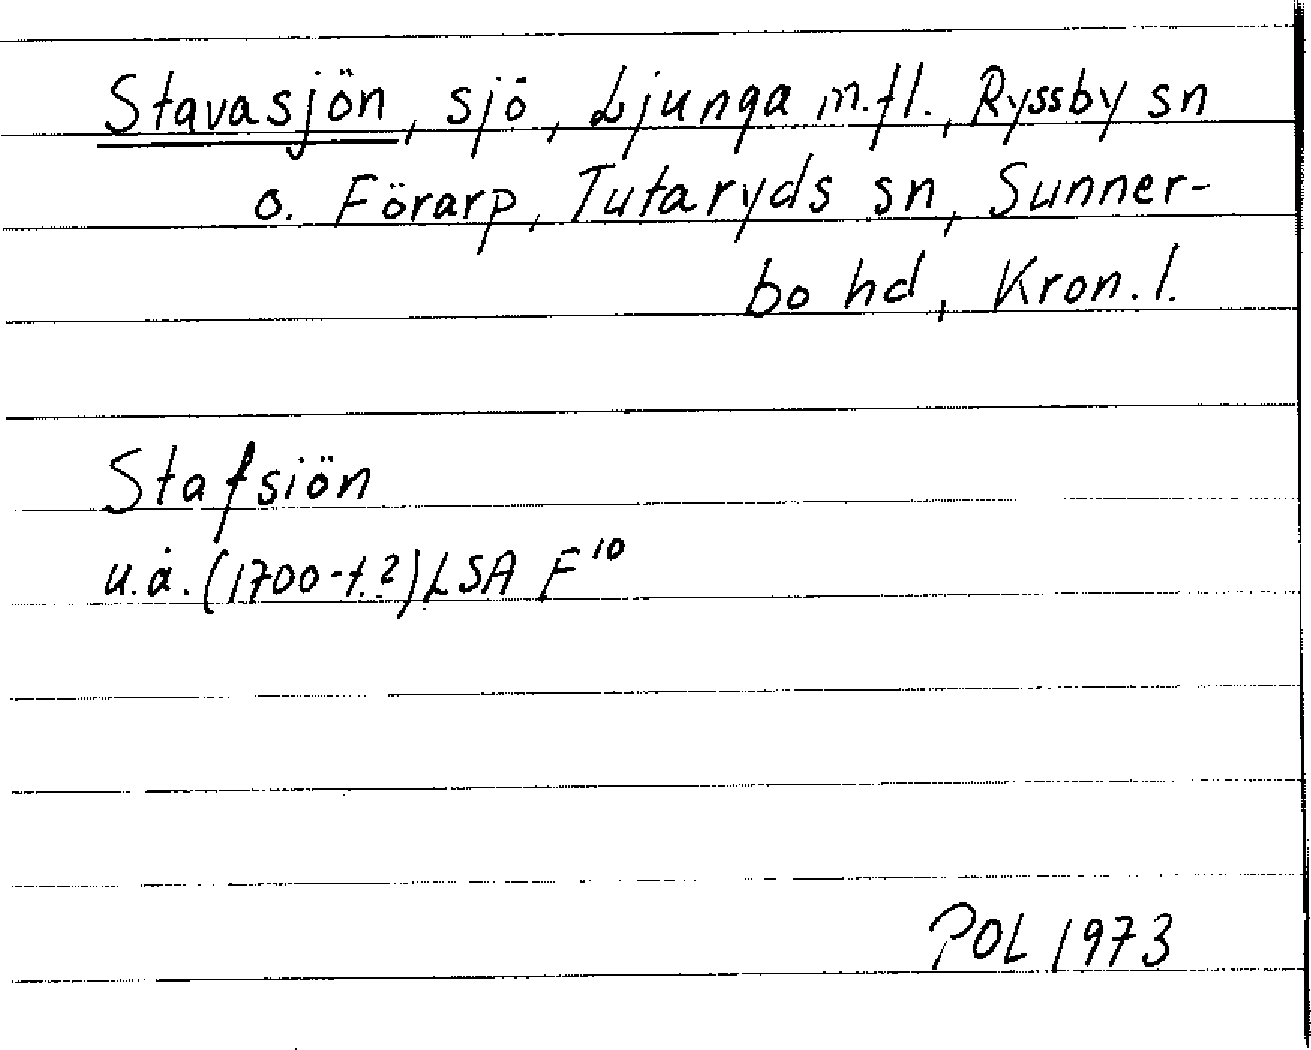 Stavasjön, sjö, Ljunga m.fl., Ryssby sn
o. Förarp, Tutaryds sn, Sunner-
bo hd, Kron. l.
Stafsiön
u.å. (1700-t.?) LSA F¹⁰
POL 1973